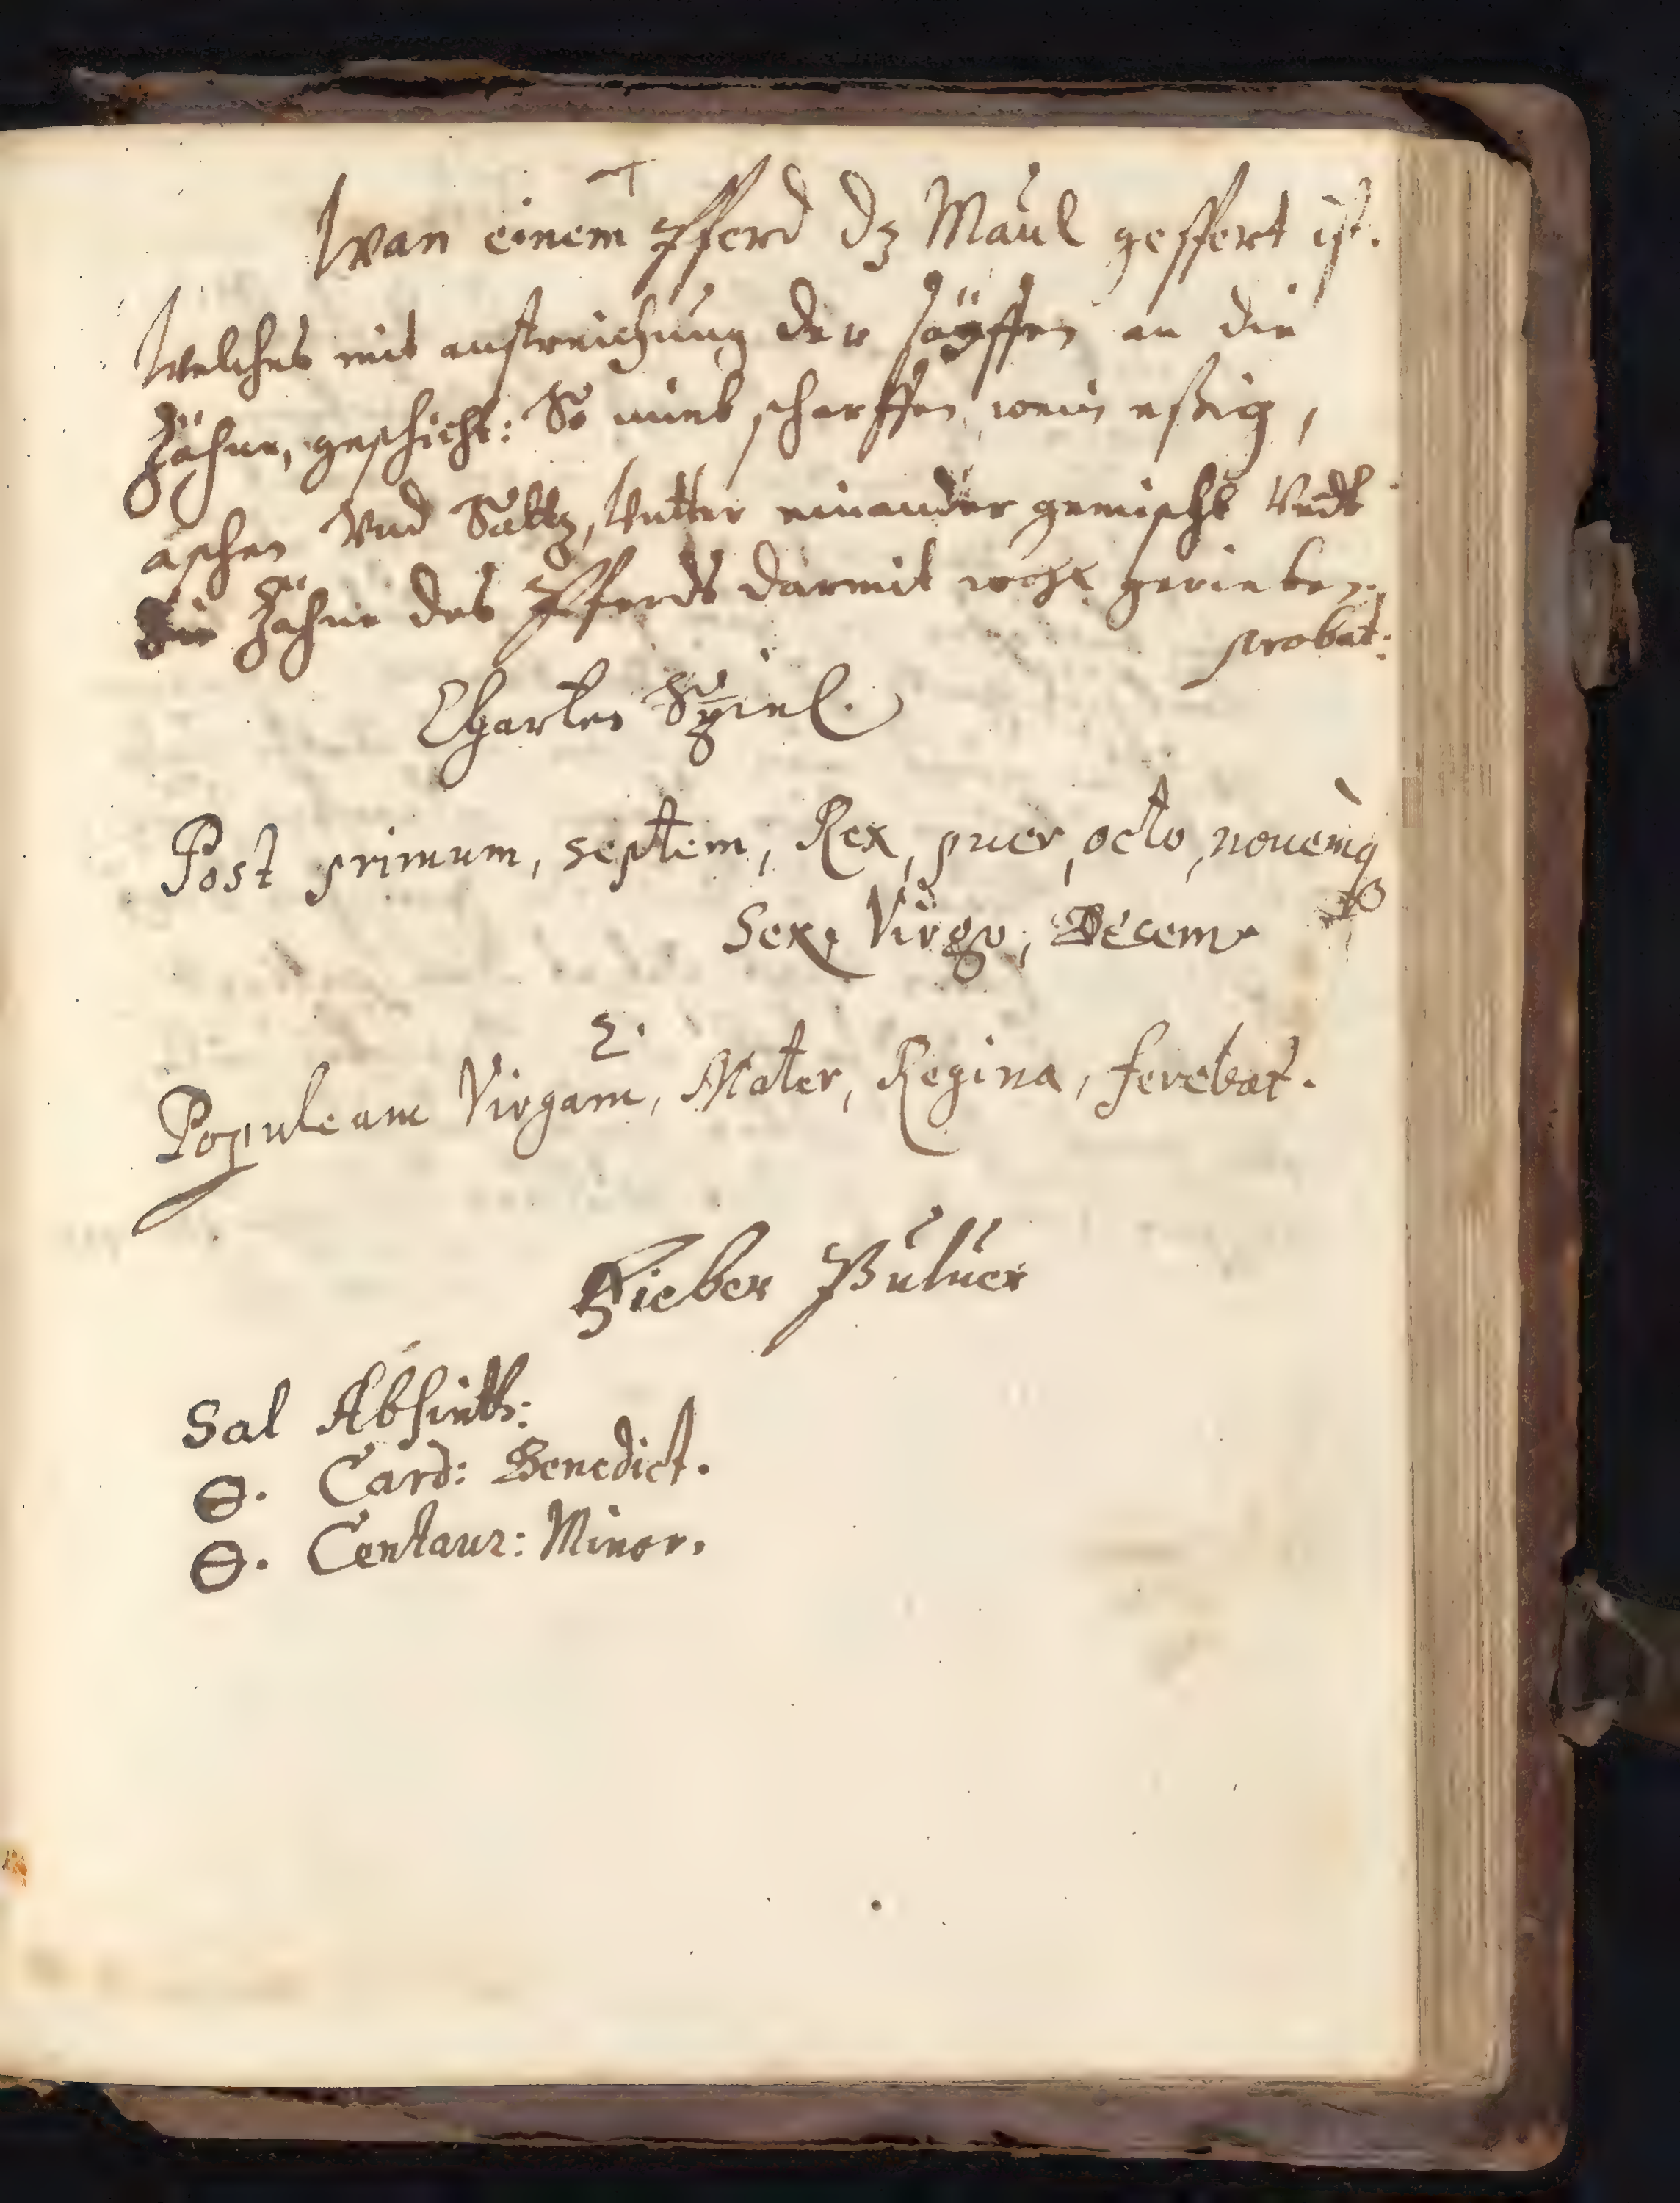 Wan einem Pferd dz Maul gesffert ist.
Welches mit anstreichung der säyffen an die
Zähne, geschicht: So nimb scharffen wein eßig,
aschen Vnd Saltz, Vntter einander gemischt Vndt
die Zähne des Pferds darmit wohl gerieben.
probat:
Charten Spiel.
Post primum, septem, Rex, puer, octo, nouemq
Sex, Virgo, Decem
2.
Populeam Virgam, Mater, Regina, ferebat.
Fieber Puluer
Sal Absinth:
⊖. Card: Benedict.
⊖. Centaur: Minor.